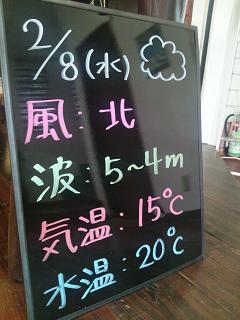 2/8(水)
風:北
波:5~4m
気温:15℃
水温:20℃